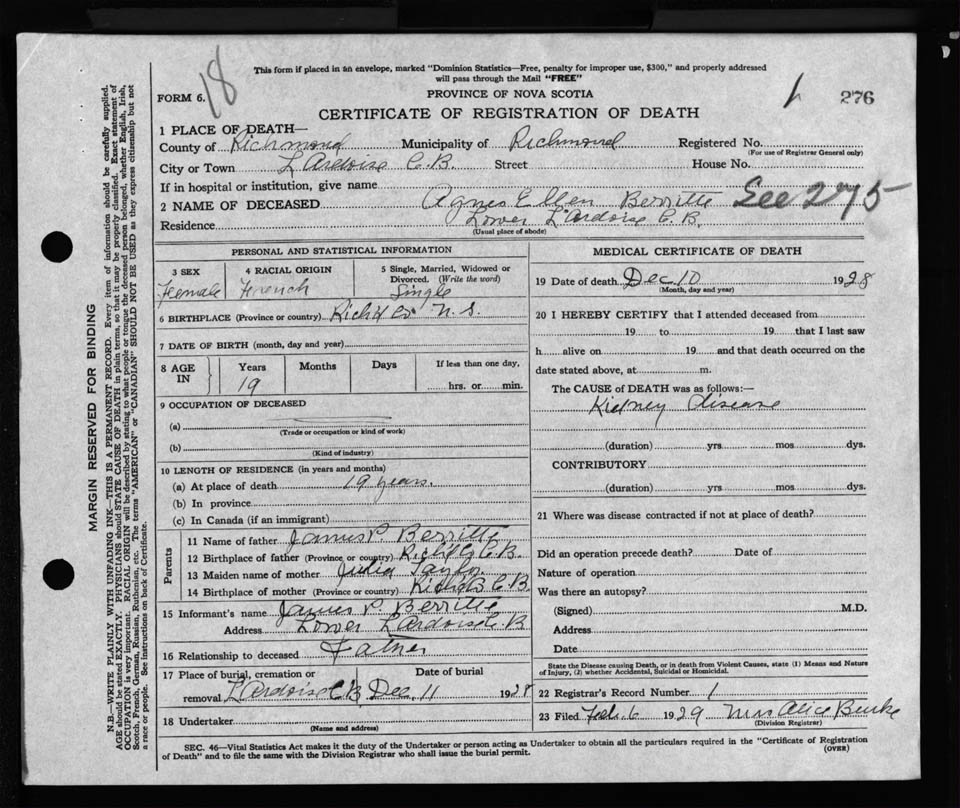 18
This form if placed in an envelope, marked "Dominion Statistics—Free, penalty for improper use, $300," and properly addressed
will pass through the Mail "FREE"
FORM 6.
PROVINCE OF NOVA SCOTIA
276
CERTIFICATE OF REGISTRATION OF DEATH
1 PLACE OF DEATH—
County of Richmond Municipality of Richmond Registered No.
(For use of Registrar General only)
City or Town L'Ardoise C.B. Street House No.
If in hospital or institution, give name
2 NAME OF DECEASED Agnes Ellen Berritte See 275
Residence Lower L'Ardoise C.B.
(Usual place of abode)
PERSONAL AND STATISTICAL INFORMATION
3 SEX 4 RACIAL ORIGIN 5 Single, Married, Widowed or
Divorced. (Write the word)
Female French Single
6 BIRTHPLACE (Province or country) Richd Co N.S.
7 DATE OF BIRTH (month, day and year)
8 AGE IN Years Months Days If less than one day,
19 hrs. or min.
9 OCCUPATION OF DECEASED
(a)
(Trade or occupation or kind of work)
(b)
(Kind of industry)
10 LENGTH OF RESIDENCE (in years and months)
(a) At place of death 19 years.
(b) In province
(c) In Canada (if an immigrant)
Parents
11 Name of father James P Berritte
12 Birthplace of father (Province or country) Richd Co C.B.
13 Maiden name of mother Julia Taylor
14 Birthplace of mother (Province or country) C.B.
15 Informant's name James P. Berritte
Address Lower L'Ardoise C.B
16 Relationship to deceased Father
17 Place of burial, cremation or Date of burial
removal L'Ardoise C.B. Dec 11 1928
18 Undertaker
(Name and address)
MEDICAL CERTIFICATE OF DEATH
19 Date of death Dec 10 1928
(Month, day and year)
20 I HEREBY CERTIFY that I attended deceased from
19 to 19 that I last saw
h alive on 19 and that death occurred on the
date stated above, at m.
The CAUSE of DEATH was as follows:—
Kidney disease
(duration) yrs mos dys.
CONTRIBUTORY
(duration) yrs mos dys.
21 Where was disease contracted if not at place of death?
Did an operation precede death? Date of
Nature of operation
Was there an autopsy?
(Signed) M.D.
Address
Date
State the Disease causing Death, or in death from Violent Causes, state (1) Means and Nature
of Injury, (2) whether Accidental, Suicidal or Homicidal.
22 Registrar's Record Number 1
23 Filed Feb. 6 1929 Mrs Alice Burke
(Division Registrar)
SEC. 46—Vital Statistics Act makes it the duty of the Undertaker or person acting as Undertaker to obtain all the particulars required in the "Certificate of Registration
of Death" and to file the same with the Division Registrar who shall issue the burial permit.
(OVER)
MARGIN RESERVED FOR BINDING
N.B.—WRITE PLAINLY WITH UNFADING INK—THIS IS A PERMANENT RECORD. Every item of information should be carefully supplied.
AGE should be stated EXACTLY. PHYSICIANS should STATE CAUSE OF DEATH in plain terms, so that it may be properly classified. Exact statement of
OCCUPATION is very important. RACIAL ORIGIN will be described by stating to what people or tongue the deceased person belonged, whether English, Irish,
Scotch, French, German, Russian, Ruthenian, etc. The terms "AMERICAN" or "CANADIAN" SHOULD NOT BE USED as they express citizenship but not
a race or people. See instructions on back of Certificate.